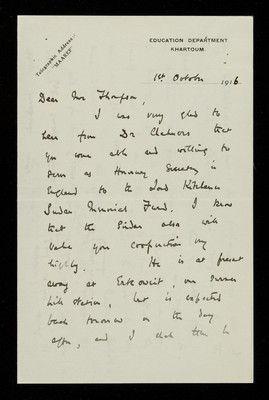 Telegraphic Address:-
"MAAREF"
EDUCATION DEPARTMENT
KHARTOUM.
1st October 1916
Dear Mr Thompson,
I was very glad to
hear from Dr Chalmers that
you were able and willing to
serve as Honorary Secretary in
England to the Lord Kitchener
Sudan Memorial Fund. I know
that the Sirdar also will
value your cooperation very
highly. He is at present
away at Erkowit, our summer
hill station, but is expected
back tomorrow or the day
after, and I shall then be